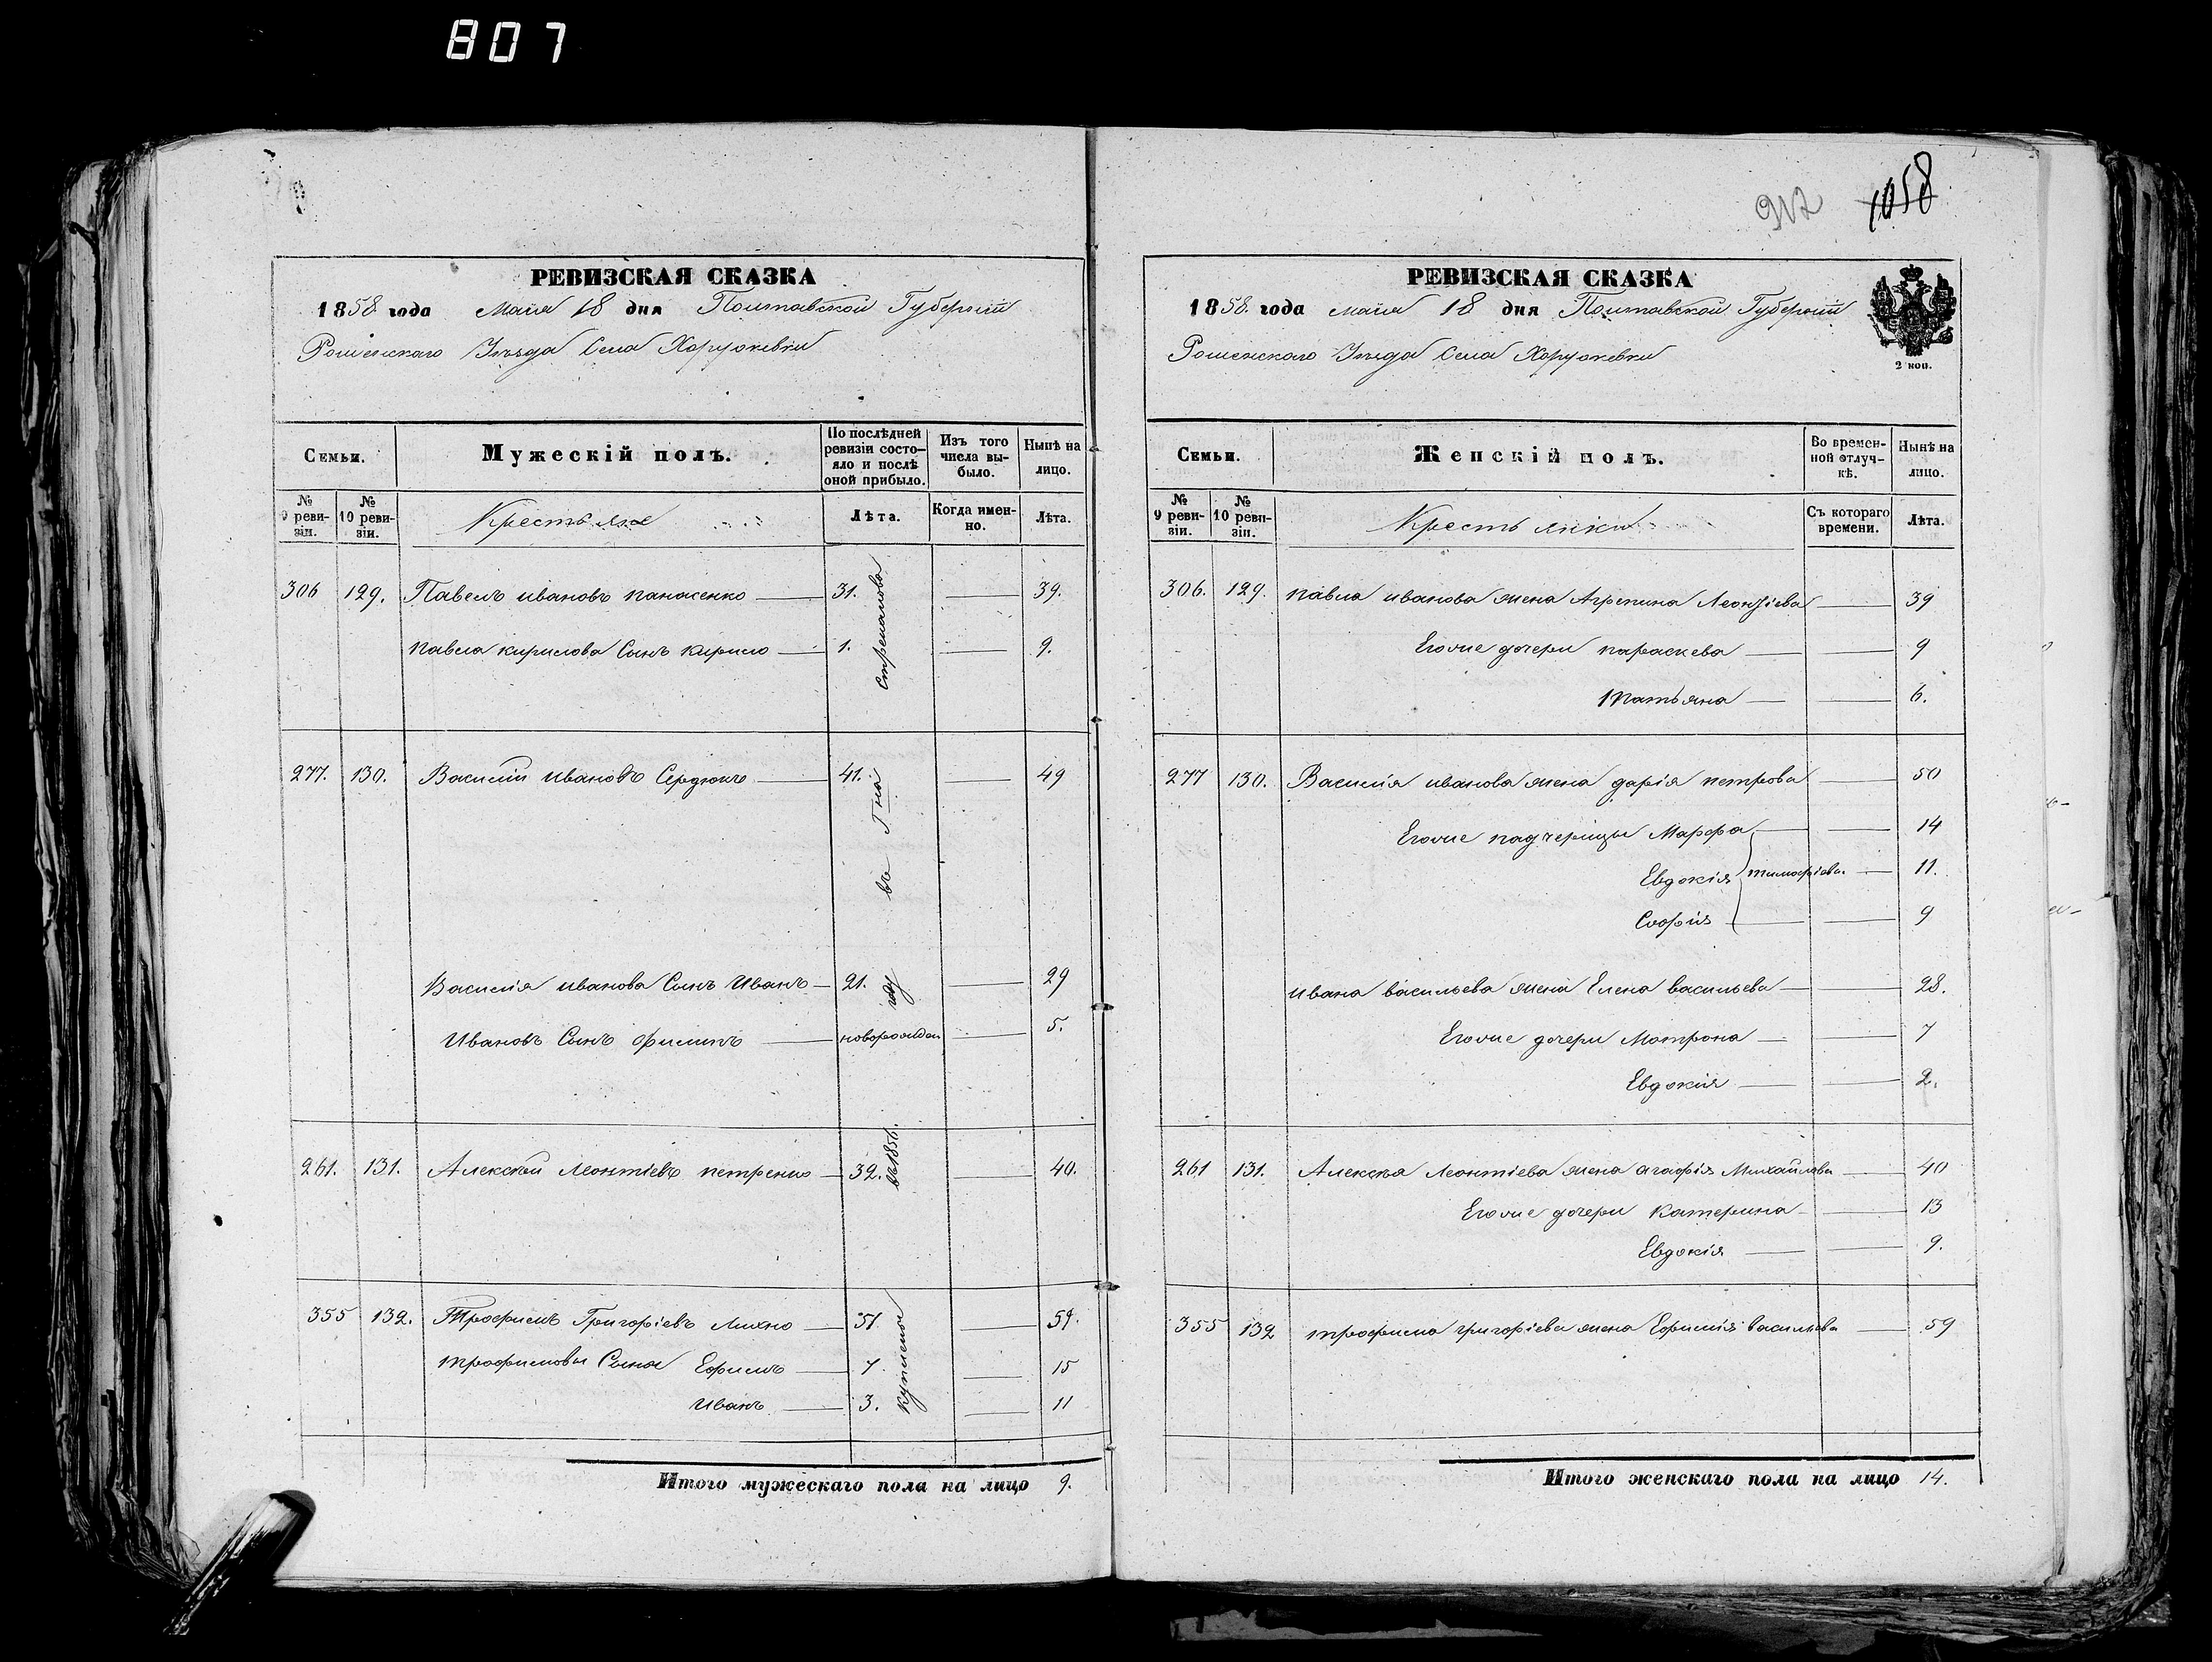 807
1058
РЕВИЗСКАЯ СКАЗКА
1858 года Маія 18 дня Полтавской Губерніи
Роменскаго Уѣзда Села Хоружевки
Семьи. Мужескій полъ. По послѣдней ревизіи состояло и послѣ оной прибыло. Изъ того числа выбыло. Нынѣ на лицо.
№ 9 ревизіи. № 10 ревизіи. Крестьяне Лѣта. Когда именно. Лѣта.
306 129. Павелъ ивановъ панасенко 31. 39.
павла кирилова Сынъ кирило 1. 9.
277. 130. Василій ивановъ Сердюкъ 41. 49
Василія иванова Сынъ Иванъ 21. 29
Ивановъ Сынъ Филипъ новорожден 5.
261. 131. Алексѣй Леонтіевъ петренко 32. 40.
355 132. Трофимъ Григоріевъ Михно 51. 59.
трофимовы Сыны Ефимъ 7. 15
Иванъ 3. 11
купленые въ 1856. году въ Гна Стремапова
Итого мужескаго пола на лицо 9.
РЕВИЗСКАЯ СКАЗКА
1858. года маія 18 дня Полтавской Губерніи
Роменскаго Уѣзда Села Хоружевки
2 коп.
Семьи. Женскій полъ. Во временной отлучкѣ. Нынѣ на лицо.
№ 9 ревизіи. № 10 ревизіи. Крестьянки Съ котораго времени. Лѣта.
306. 129. павла иванова жена Агрепина Леонтіева 39
Егоже дочери параскева 9
Татьяна 6.
277 130. Василія иванова жена дарія петрова 50
Егоже падчерицы Марфа 14
Евдокія тимофіева 11.
Софія 9
ивана васильева жена Елена васильева 28.
Егоже дочери Мотрона 7
Евдокія 2.
261 131. Алексѣя Леонтіева жена агафія Михайлова 40
Егоже дочери Катерина 13
Евдокія 9.
355 132 трофима григоріева жена Ефимія васильева 59
Итого женскаго пола на лицо 14.